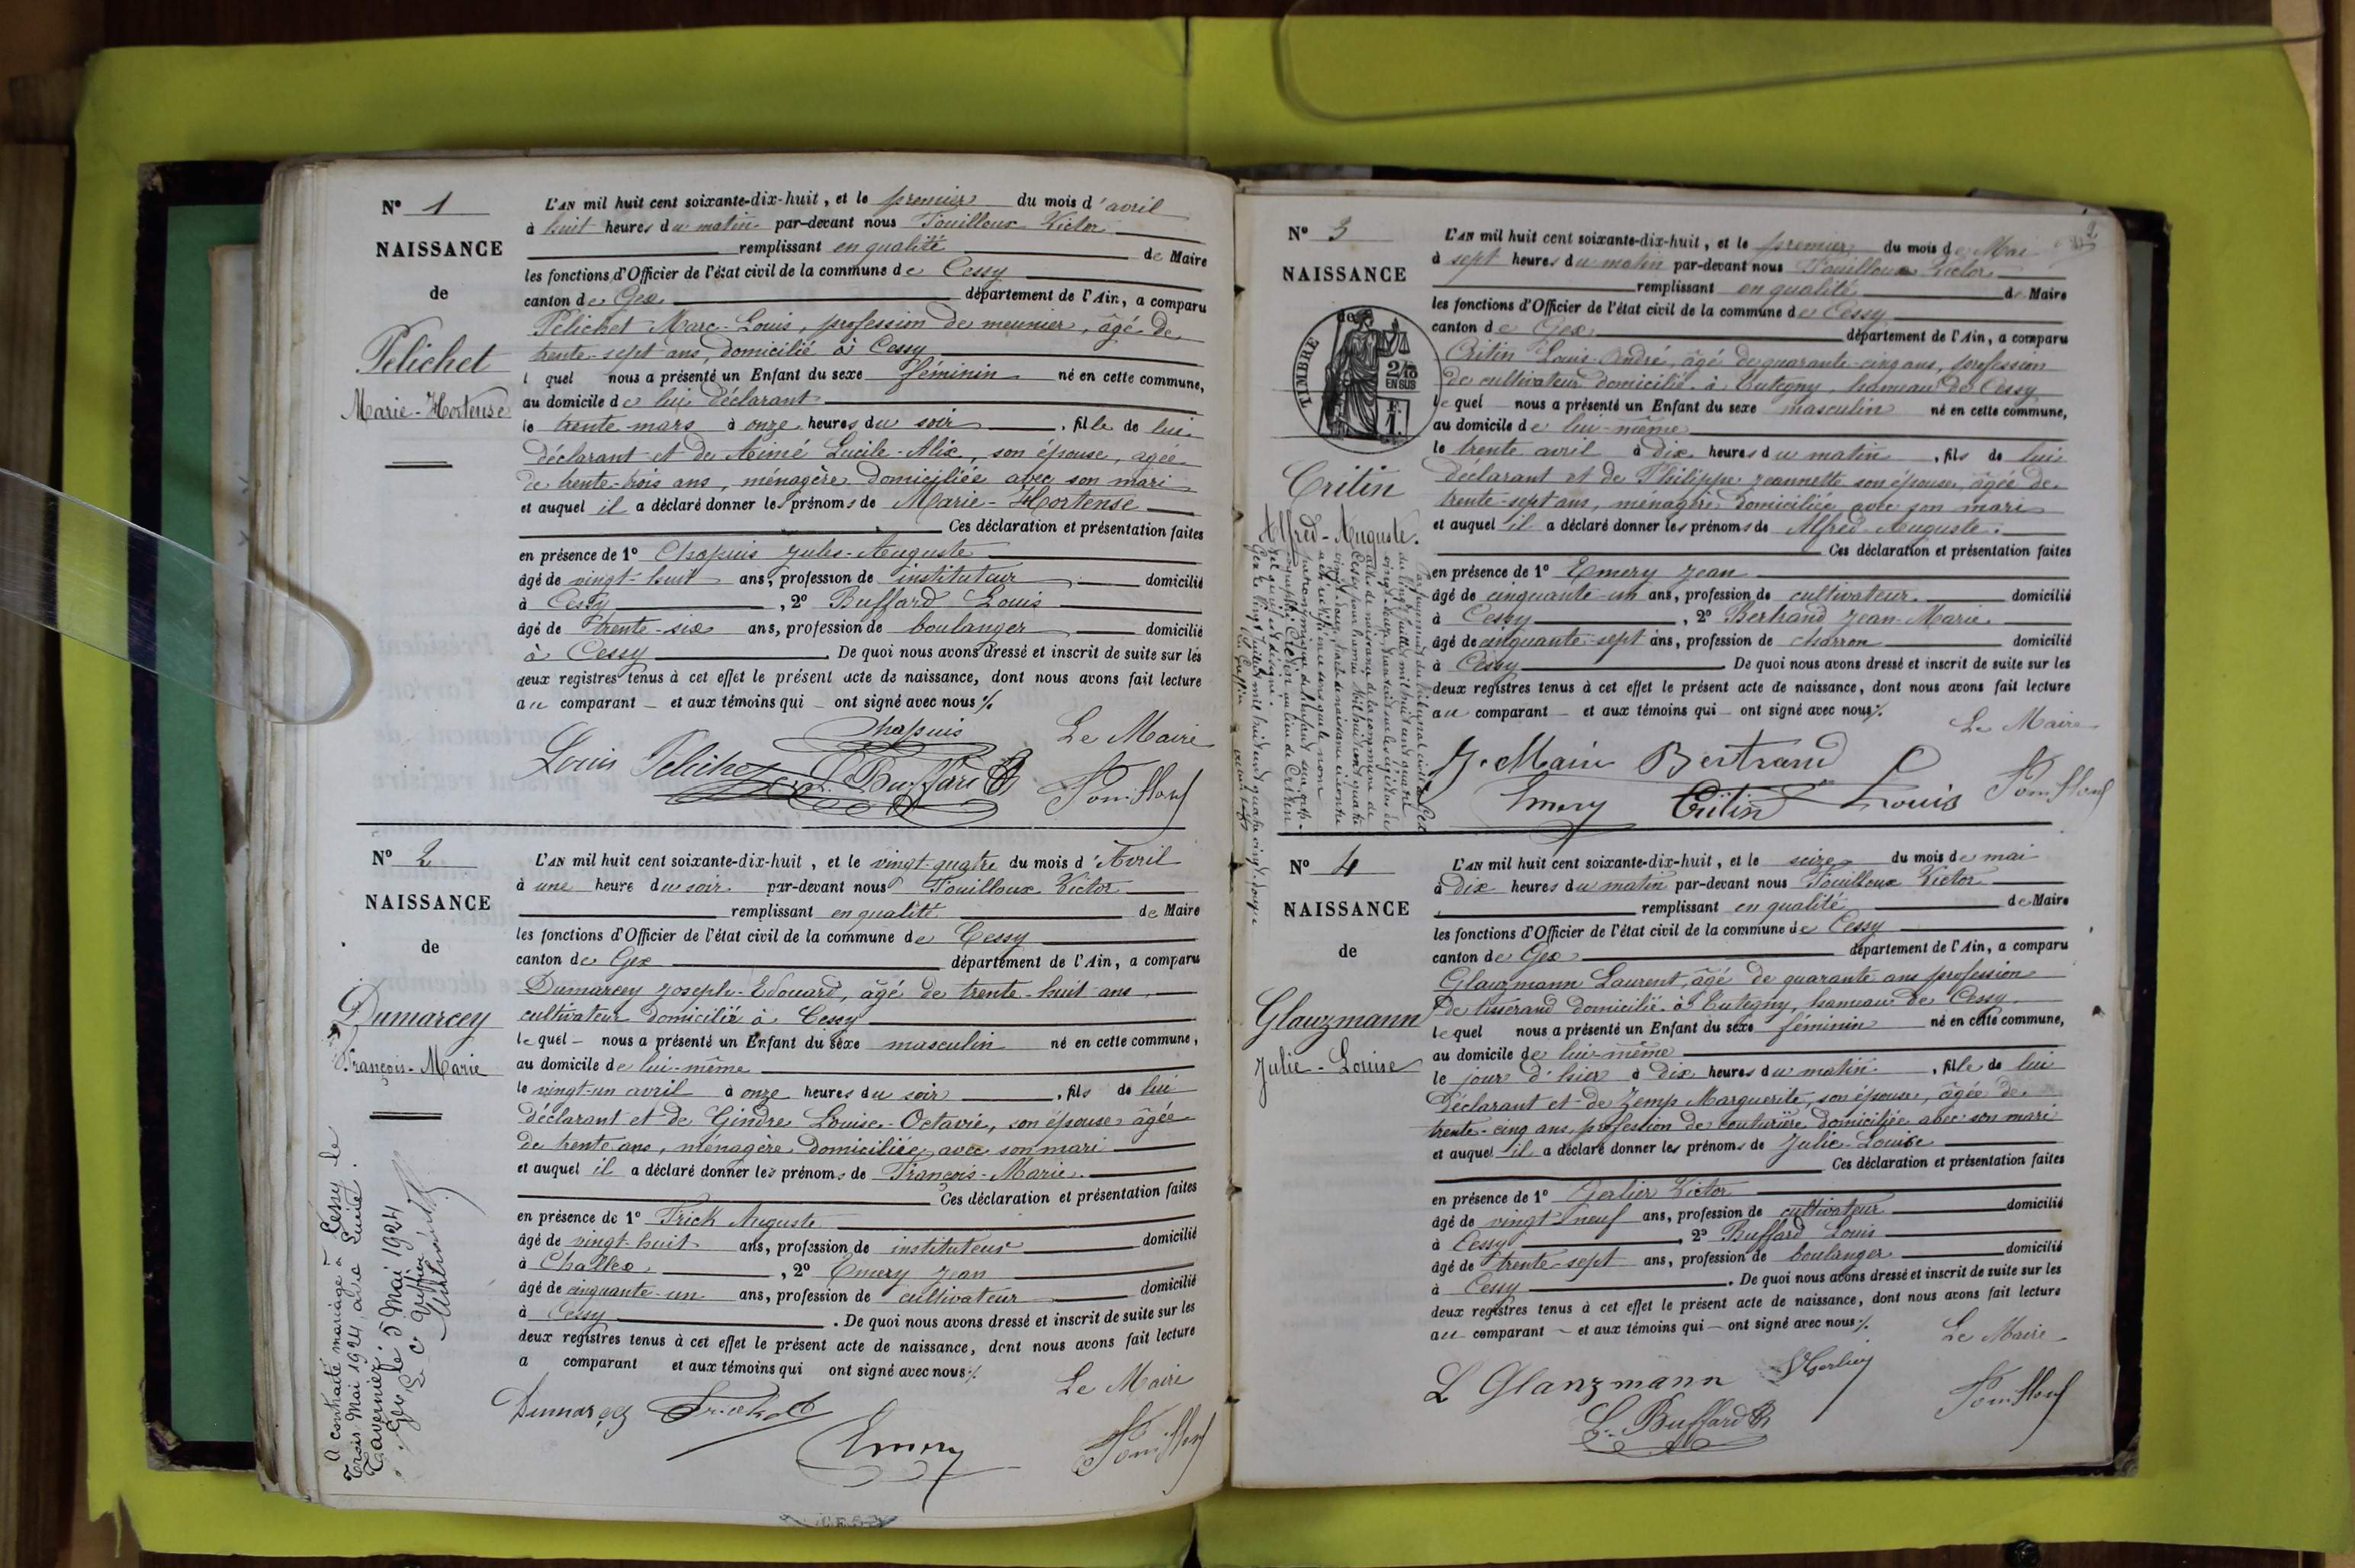 N° 1
NAISSANCE
de
Pelichet
Marie-Hortense
L'AN mil huit cent soixante-dix-huit, et le premier du mois d'avril
à huit heures du matin par-devant nous Fouilloux Victor
remplissant en qualité de Maire
les fonctions d'Officier de l'état civil de la commune de Cessy
canton de Gex département de l'Ain, a comparu
Pelichet Marc-Louis, profession de meunier, âgé de
trente-sept ans, domicilié à Cessy
l quel nous a présenté un Enfant du sexe féminin né en cette commune,
au domicile de lui déclarant
le trente mars à onze heures du soir, fille de lui
déclarant et de Aimé Lucile-Alix, son épouse, agée
de trente-trois ans, ménagère domiciliée avec son mari
et auquel il a déclaré donner les prénoms de Marie-Hortense
Ces déclaration et présentation faites
en présence de 1° Chapuis Jules-Auguste
âgé de vingt-huit ans, profession de instituteur domicilié
à Cessy, 2° Buffard Louis
âgé de trente-six ans, profession de boulanger domicilié
à Cessy. De quoi nous avons dressé et inscrit de suite sur les
deux registres tenus à cet effet le présent acte de naissance, dont nous avons fait lecture
au comparant et aux témoins qui ont signé avec nous %.
Chapuis Le Maire
Louis Pelichet L. Buffard Fouilloux
N° 2
NAISSANCE
de
Dumarcey
François-Marie
A contracté mariage à Cessy le
trois Mai 1924, avec
Tavernier.
Gex le 5 Mai 1924
Le Greffier
L'AN mil huit cent soixante-dix-huit, et le vingt-quatre du mois d'Avril
à une heure du soir par-devant nous Fouilloux Victor
remplissant en qualité de Maire
les fonctions d'Officier de l'état civil de la commune de Cessy
canton de Gex département de l'Ain, a comparu
Dumarcey Joseph-Edouard, âgé de trente-huit ans
cultivateur domicilié à Cessy
lequel nous a présenté un Enfant du sexe masculin né en cette commune,
au domicile de lui-même
le vingt-un avril à onze heures du soir, fils de lui
déclarant et de Gindre Louise-Octavie, son épouse âgée
de trente ans, ménagère domiciliée avec son mari
et auquel il a déclaré donner les prénoms de François-Marie.
Ces déclaration et présentation faites
en présence de 1° Frick Auguste
âgé de vingt-huit ans, profession de instituteur domicilié
à Challex, 2° Emery Jean
âgé de cinquante-un ans, profession de cultivateur domicilié
à Cessy. De quoi nous avons dressé et inscrit de suite sur les
deux registres tenus à cet effet le présent acte de naissance, dont nous avons fait lecture
a comparant et aux témoins qui ont signé avec nous %.
Le Maire
Dumarcey Frick
Emery Fouilloux
N° 3
NAISSANCE
de
TIMBRE
2/10 EN SUS
F. 1.
Critin
Alfred-Auguste.
2
L'AN mil huit cent soixante-dix-huit, et le premier du mois de Mai
à sept heures du matin par-devant nous Fouilloux Victor
remplissant en qualité de Maire
les fonctions d'Officier de l'état civil de la commune de Cessy
canton de Gex département de l'Ain, a comparu
Critin Louis-André, âgé de quarante-cinq ans, profession
de cultivateur domicilié à Tutegny, hameau de Cessy
lequel nous a présenté un Enfant du sexe masculin né en cette commune,
au domicile de lui-même
le trente avril à dix heures du matin, fils de lui
déclarant et de Philippe Jeannette son épouse, âgée de
trente-sept ans, ménagère domiciliée avec son mari
et auquel il a déclaré donner les prénoms de Alfred Auguste.
Ces déclaration et présentation faites
en présence de 1° Emery Jean
âgé de cinquante-un ans, profession de cultivateur domicilié
à Cessy, 2° Bertrand Jean-Marie
âgé de cinquante-sept ans, profession de charron domicilié
à Cessy. De quoi nous avons dressé et inscrit de suite sur les
deux registres tenus à cet effet le présent acte de naissance, dont nous avons fait lecture
au comparant et aux témoins qui ont signé avec nous %.
Le Maire
J. Marie Bertrand
Emery Critin Louis Fouilloux
N° 4
NAISSANCE
de
Glauzmann
Julie-Louise
L'AN mil huit cent soixante-dix-huit, et le seize du mois de mai
à dix heures du matin par-devant nous Fouilloux Victor
remplissant en qualité de Maire
les fonctions d'Officier de l'état civil de la commune de Cessy
canton de Gex département de l'Ain, a comparu
Glauzmann Laurent, âgé de quarante ans profession
de tisserand domicilié à Tutegny, hameau de Cessy.
lequel nous a présenté un Enfant du sexe féminin né en cette commune,
au domicile de lui-même
le jour d'hier à dix heures du matin, fille de lui
déclarant et de Zemp Marguerite, son épouse, âgée de
trente-cinq ans, profession de couturière domiciliée avec son mari
et auquel il a déclaré donner les prénoms de Julie-Louise
Ces déclaration et présentation faites
en présence de 1° Gerlier Victor
âgé de vingt neuf ans, profession de cultivateur domicilié
à Cessy, 2° Buffard Louis
âgé de trente-sept ans, profession de boulanger domicilié
à Cessy. De quoi nous avons dressé et inscrit de suite sur les
deux registres tenus à cet effet le présent acte de naissance, dont nous avons fait lecture
au comparant et aux témoins qui ont signé avec nous %.
Le Maire
L Glanzmann V Gerlier
L. Buffard Fouilloux